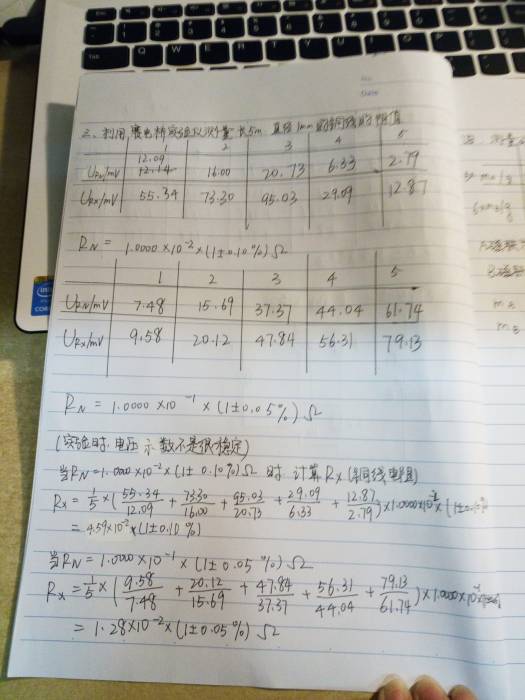 三、利用赛电桥实验仪测量长5m,直径1mm的铜线的阻值
1 2 3 4 5
12.09
U_RN/mV 12.14 16.00 20.73 6.33 2.79
U_RX/mV 55.34 73.30 95.03 29.09 12.87
R_N = 1.0000×10⁻²×(1±0.10%)Ω
1 2 3 4 5
U_RN/mV 7.48 15.69 37.37 44.04 61.74
U_RX/mV 9.58 20.12 47.84 56.31 79.13
R_N = 1.0000×10⁻¹×(1±0.05%)Ω
(实验时,电压示数不是很稳定)
当R_N=1.000×10⁻²×(1±0.10%)Ω时 计算R_X(铜线电阻)
R_X=1/5×(55.34/12.09+73.30/16.00+95.03/20.73+29.09/6.33+12.87/2.79)×1.0000×10⁻²×(1±0.10%)
=4.59×10⁻²×(1±0.10%)
当R_N=1.0000×10⁻¹×(1±0.05%)Ω
R_X=1/5×(9.58/7.48+20.12/15.69+47.84/37.37+56.31/44.04+79.13/61.74)×1.0000×10
=1.28×10⁻²×(1±0.05%)Ω